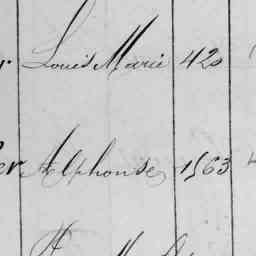 r. Louis Marie 420
er Alphonse 1563